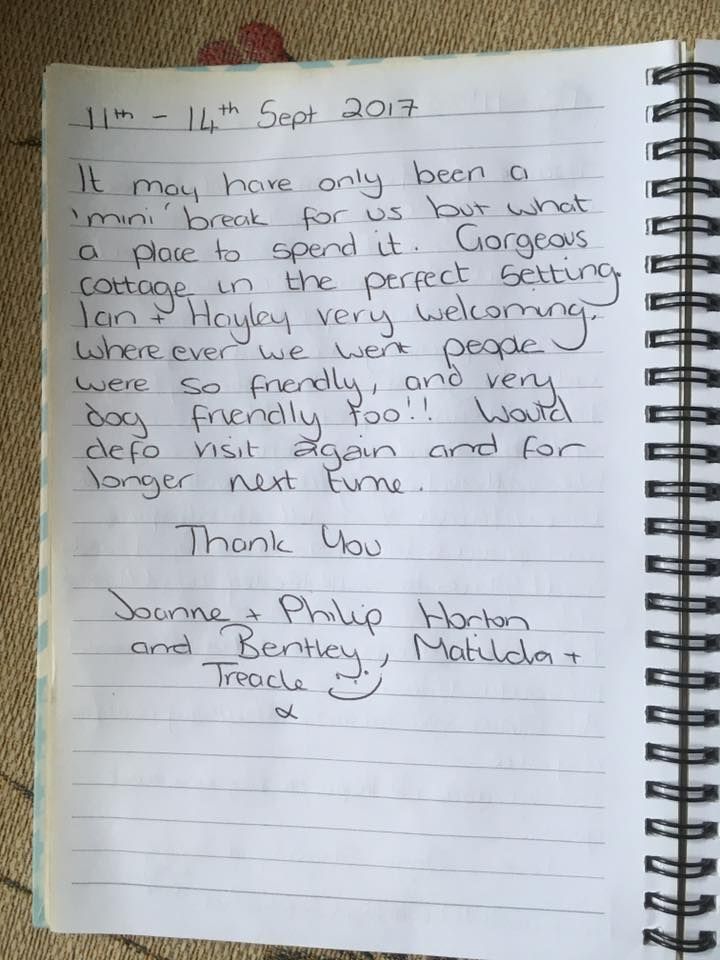 11th - 14th Sept 2017
It may have only been a
'mini' break for us but what
a place to spend it. Gorgeous
cottage in the perfect setting.
Ian + Hayley very welcoming.
Where ever we went people
were so friendly, and very
dog friendly too!! Would
defo visit again and for
longer next time.
Thank You
Joanne + Philip Horton
and Bentley, Matilda +
Treacle
x